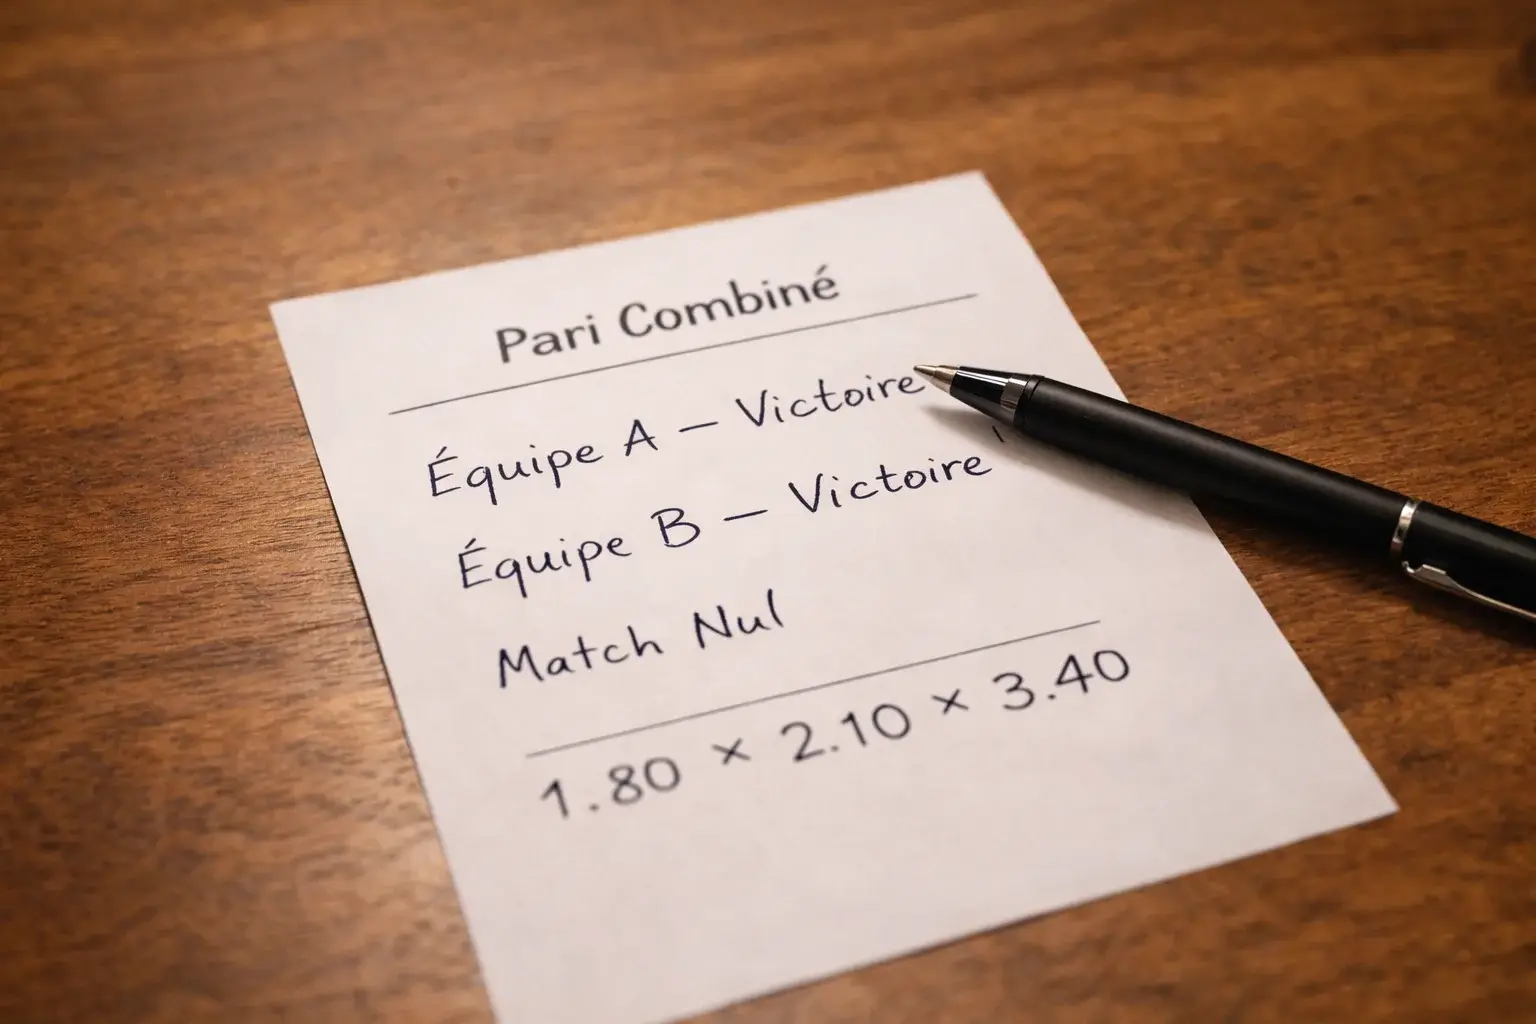 Pari Combiné
Équipe A – Victoire
Équipe B – Victoire
Match Nul
1.80 × 2.10 × 3.40